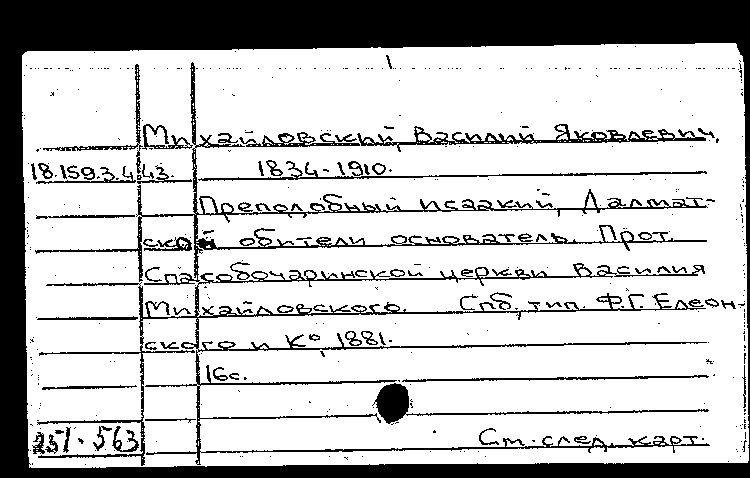 Михайловский, Василий Яковлевич,
18.159.3.443. 1834-1910.
Преподобный Исаакий, Далмат-
ской обители основатель. Прот.
Спасобочаринской церкви Василия
Михайловского. Спб, тип. Ф.Г. Елеон-
ского и К°, 1881.
16с.
251-563 См. след. карт.